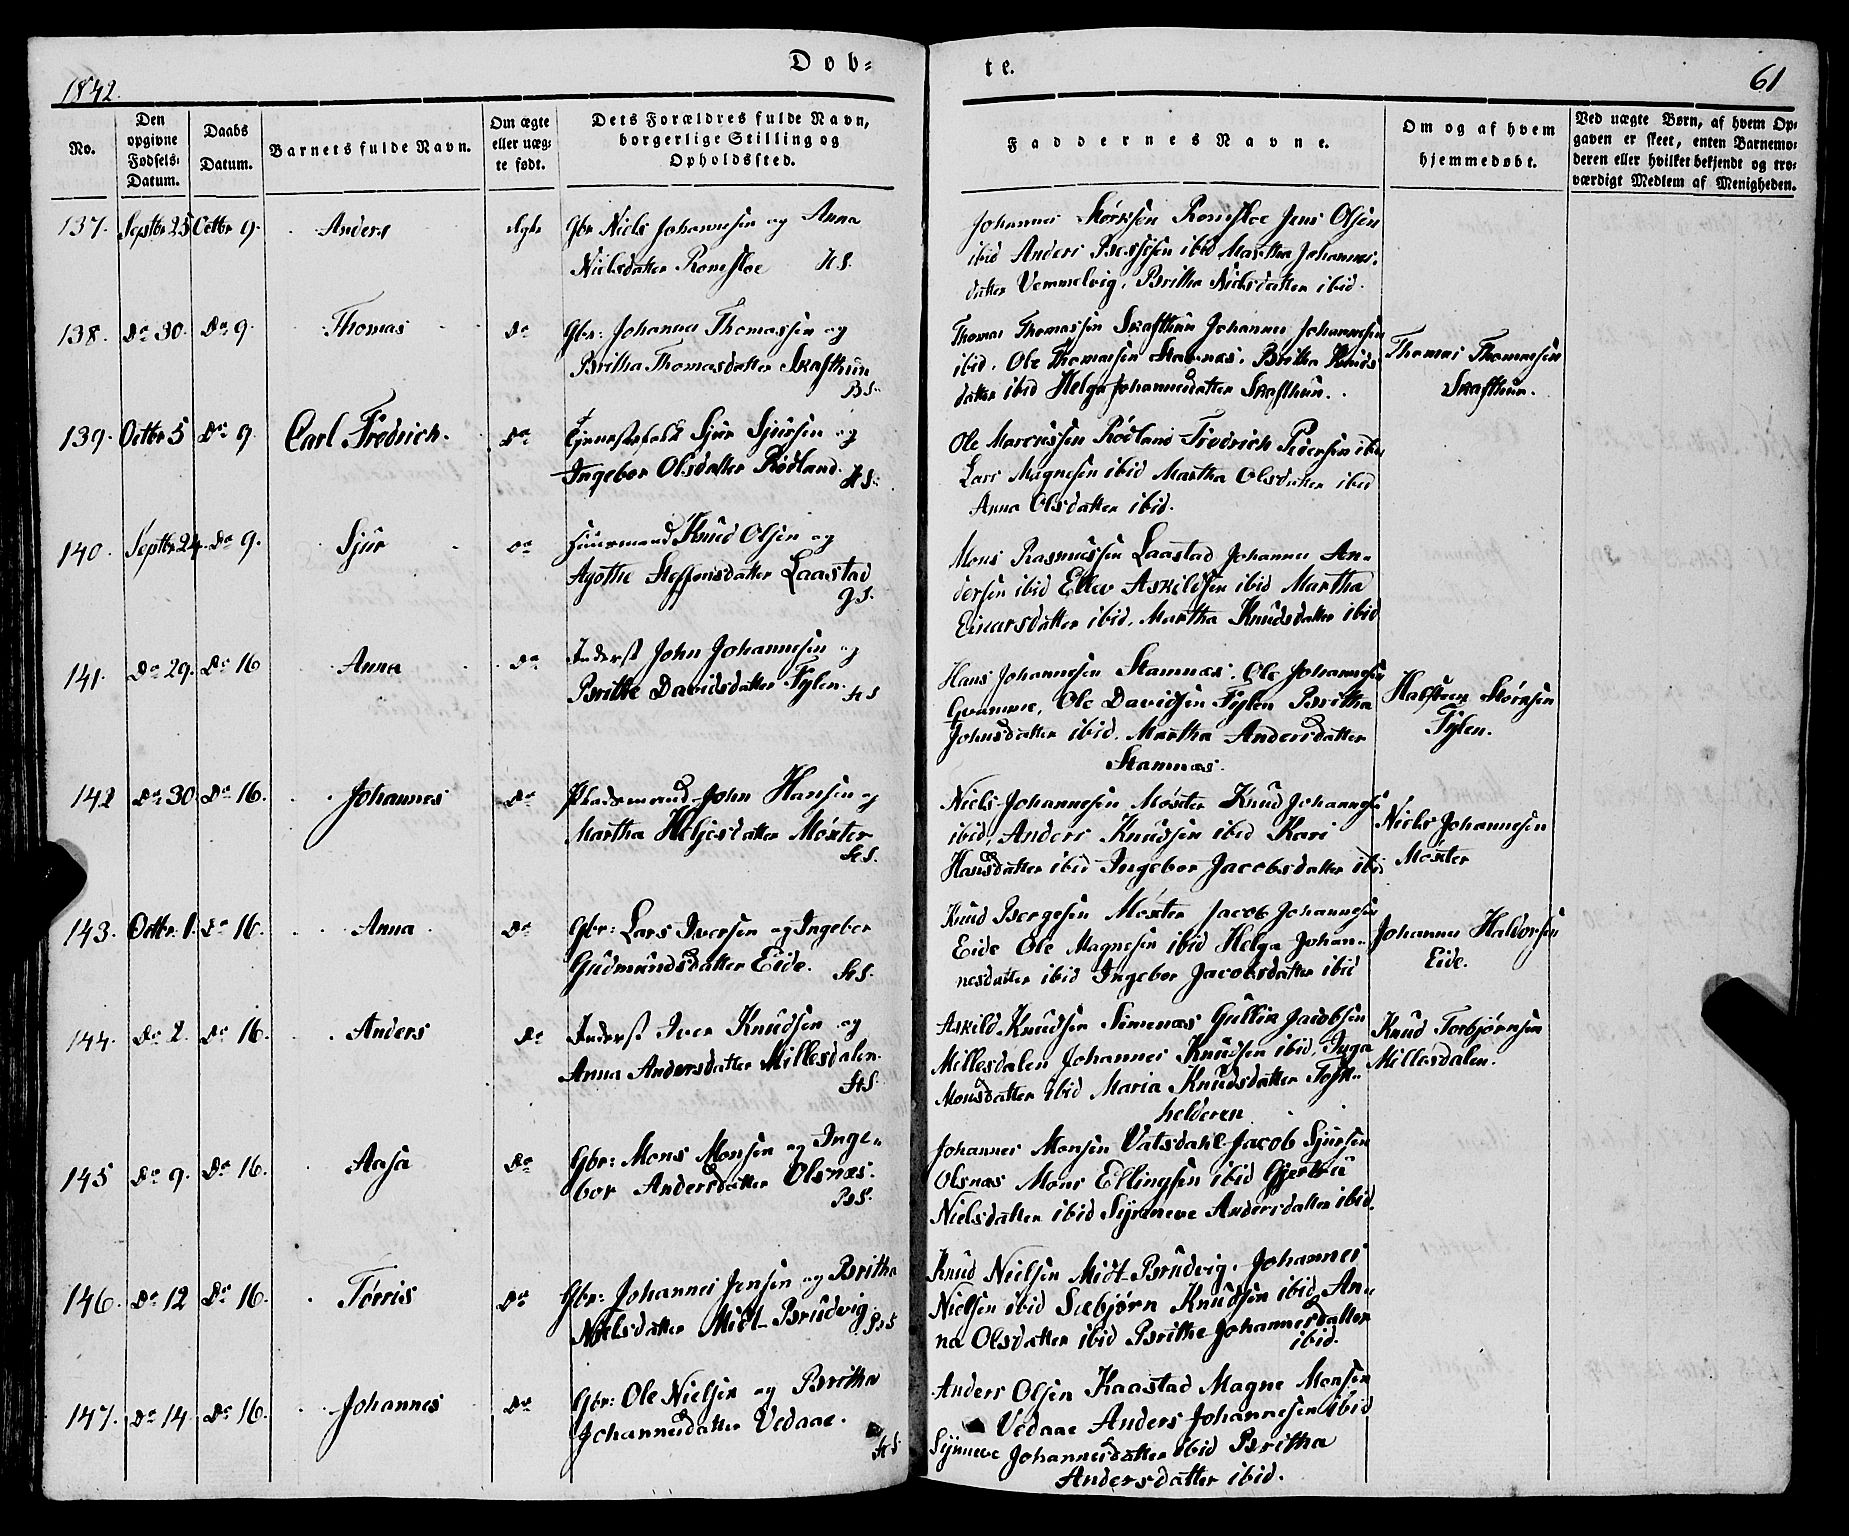 1842.
Døb-
te.
61
No.
Den opgivne Fødsels-Datum.
Daabs Datum.
Barnets fulde Navn.
Om ægte eller uægte født.
Dets Forældres fulde Navn, borgerlige Stilling og Opholdssted.
Faddernes Navne.
Om og af hvem hjemmedøbt.
Ved uægte Børn, af hvem Opgaven er skeet, enten Barnemoderen eller hvilket bekjendt og troværdigt Medlem af Menigheden.
137. Septbr 25 Octbr 9. Anders Ægte Gbr Niels Johannesen og Anna
Nielsdatter Romsloe HS.
Johannes Størksen Romsloe Jens Olsen
ibid Anders ibid Martha Johannes-
datter Vemmelvig, Britha Nielsdatter ibid.
138. Do 30. Do 9. Thomas Do Gbr: Johannes Thomassen og
Britha Thomasdatter Skafthun
BS.
Thomas Thomassen Skafthun Johannes Johannesen
ibid. Ole Thomassen Stamnes. Britha Knuds
datter ibid Helga Johannesdatter Skafthun.
Thomas Thomassen
Skafthun.
139. Octbr 5 Do 9. Carl Fredrich. Do Tjenestefolk Sjur Sjursen og
Ingebor Olsdatter Rødland. HS.
Ole Marcussen Rødland Fredrich Pedersen ibid
Lars Magnesen ibid Martha Olsdatter ibid
Anna Olsdatter ibid.
140. Septbr 24. Do 9. Sjur Do Huusmand Knud Olsen og
Agothe Steffensdatter Laastad
GS.
Mons Rasmussen Laastad Johannes An-
dersen ibid Ellev Askildsen ibid Martha
Einarsdatter ibid. Martha Knudsdatter ibid
141. Do 29. Do 16 Anna Do Inderst John Johannesen og
Britte Davidsdatter Fylen. HS
Hans Johannesen Stamnes. Ole Johannesen
Gvamme, Ole Davidsen Fylen Britha
Johnsdatter ibid. Martha Andersdatter
Stamnæs.
Halsteen Størksen
Fylen.
142 Do 30 Do 16. Johannes Do Pladsmand John Hansen og
Martha Heljesdatter Møster
HS.
Niels Johannesen Møster Knud Johannesen
ibid, Anders Knudsen ibid Kari
Hansdatter ibid Ingebor Jacobsdatter ibid
Niels Johannesen
Møster
143. Octbr. 1. Do 16. Anna Do Gbr: Lars Iversen og Ingebor
Gudmundsdatter Eide. HS.
Knud Børgesen Møster Jacob Johannesen
Eide Ole Magnesen ibid Helga Johan-
nesdatter ibid Ingebor Jacobsdatter ibid
Johannes Haldorsen
Eide.
144. Do 2. Do 16. Anders Do Inderst Iver Knudsen og
Anna Andersdatter Millesdalen.
HS.
Askild Knudsen Simenæs Gullik Jacobsen
Millesdalen Johannes Knudsen ibid, Inga
Monsdatter ibid Maria Knudsdatter Toft-
helderen
Knud Torbjørnsen
Millesdalen.
145 Do 9. Do 16. Aasa Do Gbr: Mons Monsen og Inge-
bor Andersdatter Olsnæs.
BS.
Johannes Monsen Vatsdahl Jacob Sjursen
Olsnæs Mons Ellingsen ibid Gjertru
Nielsdatter ibid Synneve Andersdatter ibid.
146. Do 12 Do 16. Tørris Do Gbr: Johannes Jensen og Britha
Nielsdatter Midt-Brudvig BS
Knud Nielsen Midt-Brudvig. Johannes
Nielsen ibid Sæbjørn Knudsen ibid An-
na Olsdatter ibid Brithe Johannesdatter
ibid.
147. Do 14. Do 16. Johannes Do Gbr: Ole Nielsen og Britha
Johannesdatter Vedaae.
HS
Anders Olsen Kaastad Magne Monsen
Vedaae Anders Johannesen ibid
Synneve Johannesdatter ibid Britha
Andersdatter ibid.